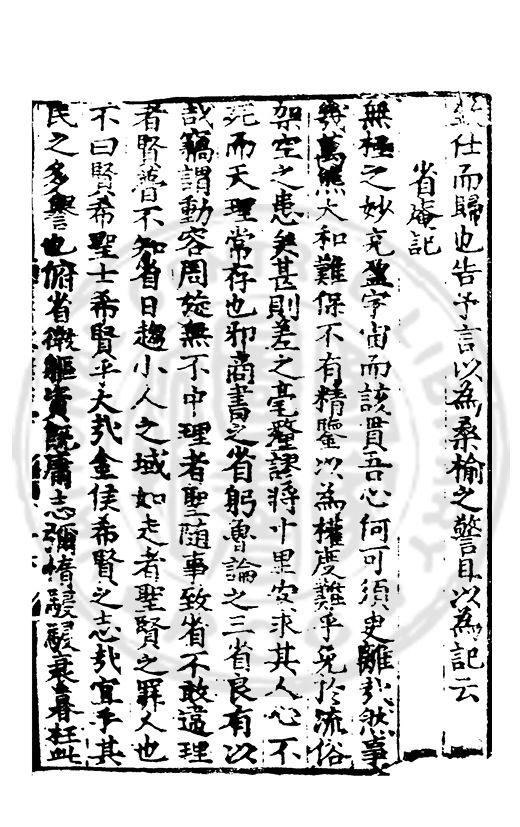 仕而歸也告予言以為桑榆之警且以為記云
省庵記
無極之妙充盈宇宙而該貫吾心何可須臾離哉然事
幾萬態大和難保不有精鑒以為權度難乎免於流俗
架空之患矣甚則差之毫釐謬將十里安求其人心不
死而天理常存也邪商書之省躬魯論之三省良有以
哉竊謂動容周旋無不中理者聖隨事致省不敢違理
者賢瞢不知省日趨小人之域如走者聖賢之罪人也
不曰賢希聖士希賢乎大哉金侯希賢之志哉宜乎其
民之多譽也俯省微軀資既庸志彌惰駸駸衰暮枉此